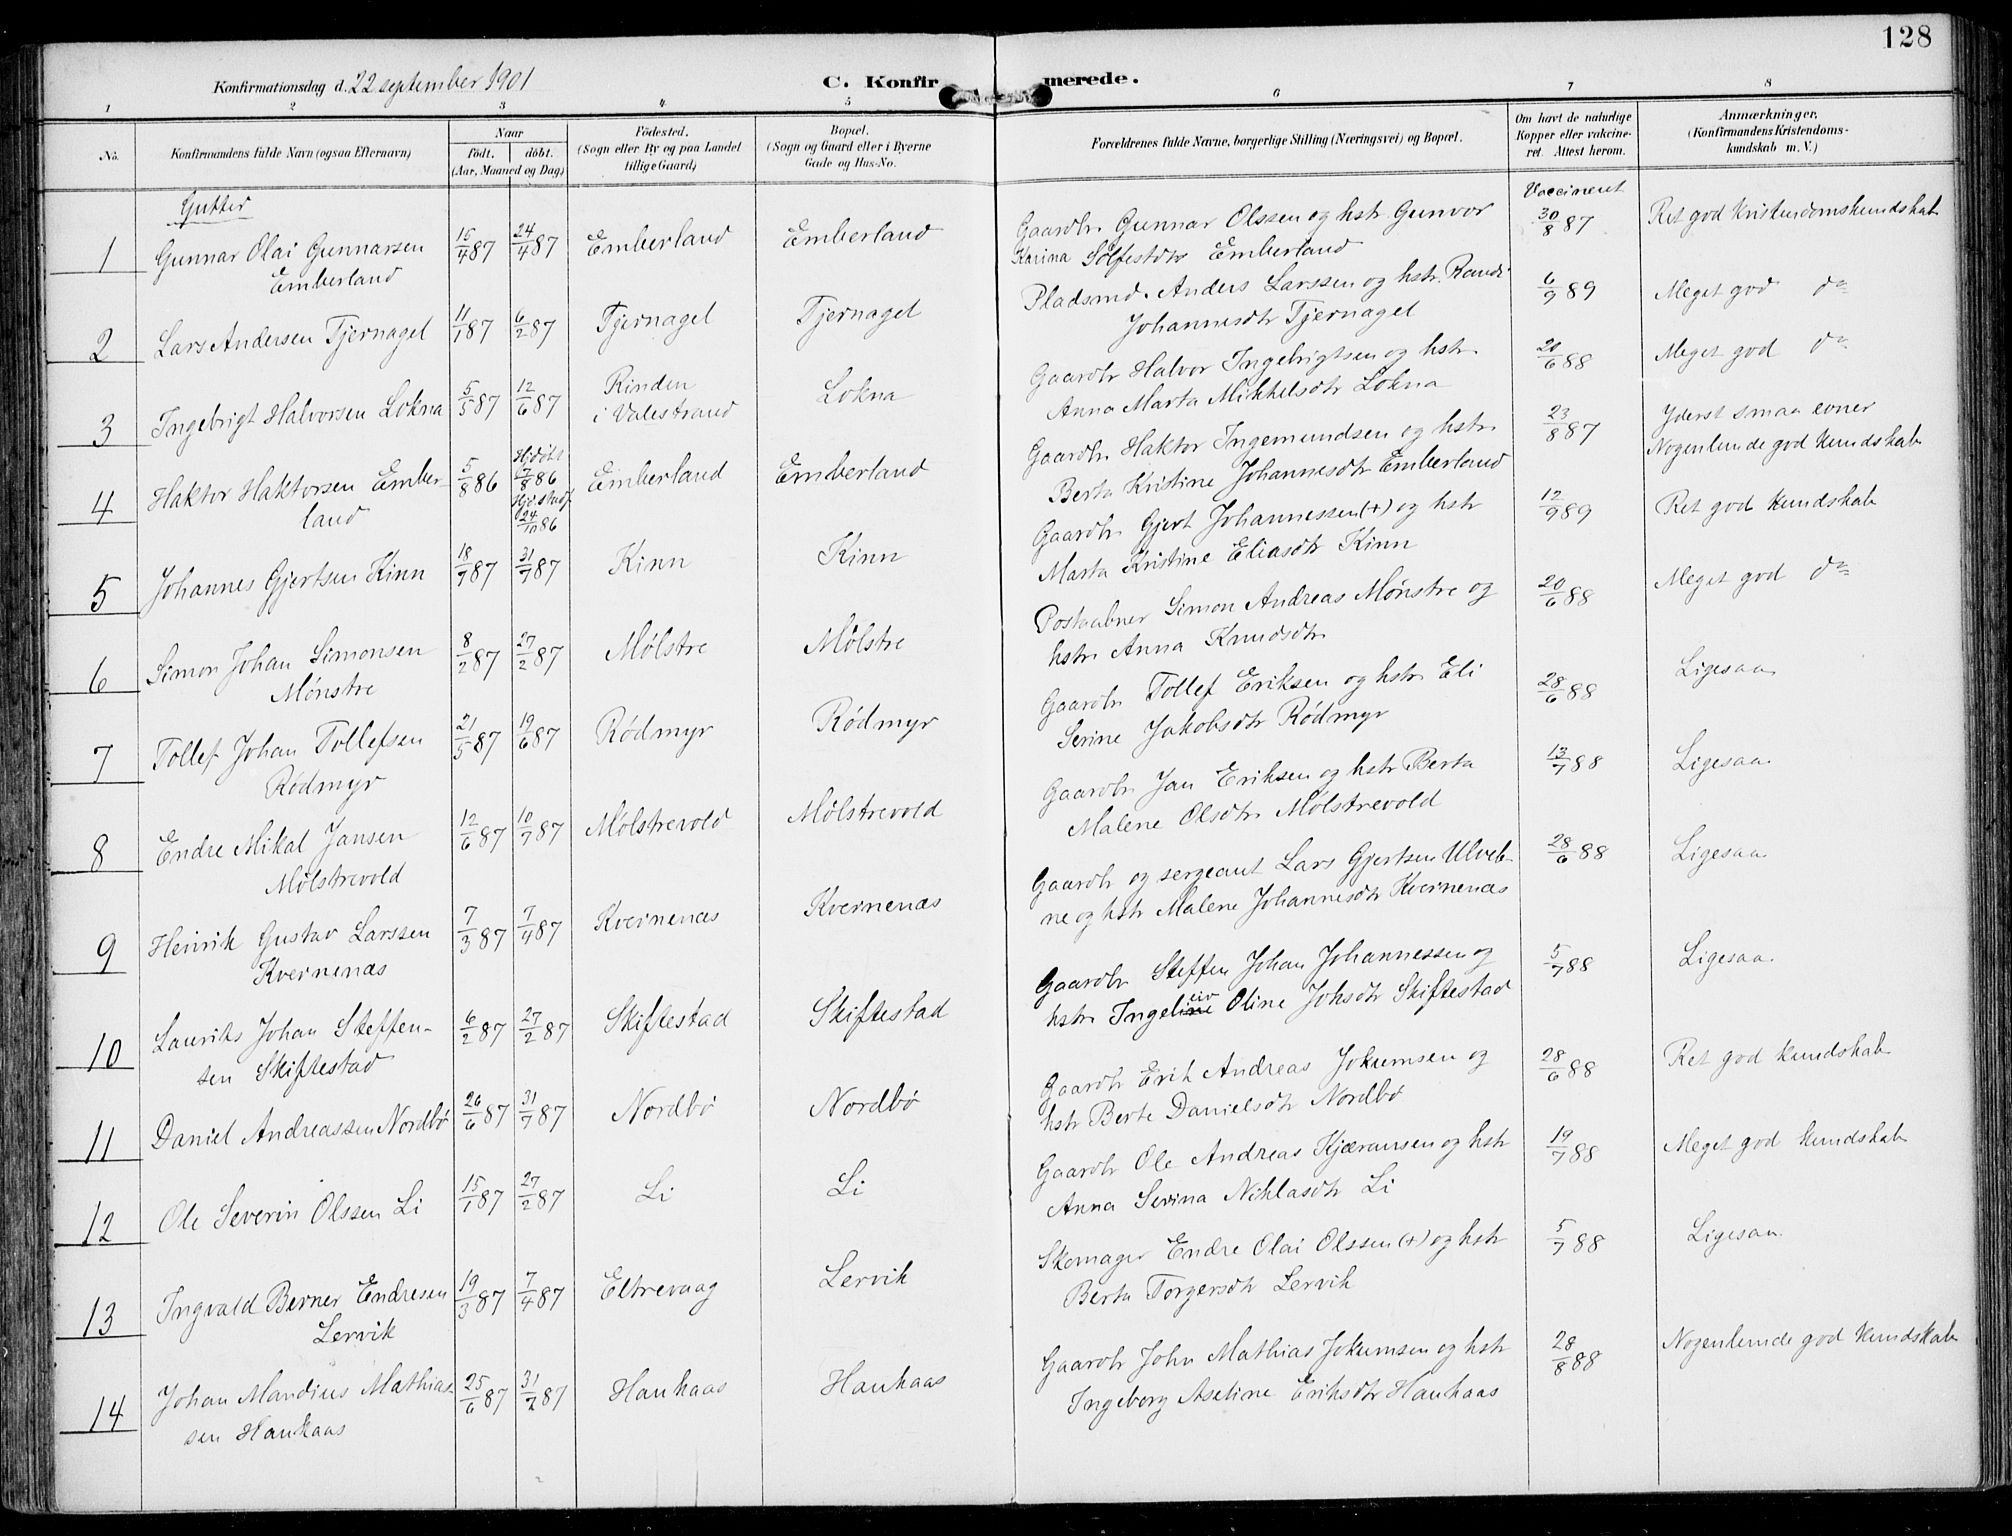 128
Konfirmationsdag d. 22 september 1901
C. Konfirmerede.
1 2 3 4 5 6 7 8
No.
Konfirmandens fulde Navn (ogsaa Efternavn)
Naar
født. døbt.
(Aar, Maaned og Dag)
Fødested.
(Sogn eller By og paa Landet
tillige Gaard)
Bopæl.
(Sogn og Gaard eller i Byerne
Gade og Hus-No.
Forældrenes fulde Navne, borgerlige Stilling (Næringsvei) og Bopæl.
Om havt de naturlige
Kopper eller vakcine-
ret. Attest herom.
Anmærkninger.
(Konfirmandens Kristendoms-
kundskab m. V.)
Gutter
Vaccineret
1 Gunnar Olai Gunnarsen 15/4 87 24/4 87 Emberland Emberland Gaardbr. Gunnar Olssen og hstr. Gunvor 30/8 87 Ret god Kristendomskundskab
Emberland Karina Solfestdtr Emberland
2 Lars Andersen Tjernagel 11/1 87 6/2 87 Tjernagel Tjernagel Pladsmd. Anders Larssen og hstr. Randi 6/9 89 Meget god do
Johannesdtr Tjernagel
3 Ingebrigt Halvorsen Lokna 5/5 87 12/6 87 Rinden Lokna Gaardbr Halvor Ingebrigtsen og hstr. 20/6 88 Meget god do
i Valestrand Anna Marta Mikkelsdtr Lokna
4 Haktor Haktorsen Ember- 5/8 86 Hjdøbt 7/8 86 Emberland Emberland Gaardbr. Haktor Ingemundsen og hstr. 23/8 87 Yderst smaa evner
land Hjstadf. 24/10 86 Berta Kristine Johannesdtr Emberland Nogenlunde god kundskab
5 Johannes Gjertsen Kinn 18/7 87 31/7 87 Kinn Kinn Gaardbr. Gjert Johannessen (+) og hstr 12/9 89 Ret god kundskab
Marta Kristine Eliasdtr Kinn
6 Simon Johan Simonsen 8/2 87 27/2 87 Mølstre Mølstre Postaabner Simon Andreas Mønstre og 20/6 88 Meget god do
Mønstre hstr. Anna Knudsdtr
7 Tollef Johan Tollefsen 21/5 87 19/6 87 Rødmyr Rødmyr Gaardbr. Tollef Eriksen og hstr. Eli 28/6 88 Ligesaa
Rødmyr Serine Jakobsdtr Rødmyr
8 Endre Mikal Jansen 12/6 87 10/7 87 Mølstrevold Mølstrevold Gaardbr. Jan Eriksen og hstr Berta 13/7 88 Ligesaa
Mølstrevold Malene Olsdtr. Mølstrevold
9 Henrik Gustav Larssen 7/3 87 7/4 87 Kvernenæs Kvernenæs Gaardbr og sergeant Lars Gjertsen Ulveb- 28/6 88 Ligesaa
Kvernenæs ne og hstr Malene Johannesdtr Kvernenæs
10 Laurits Johan Steffen- 6/2 87 27/2 87 Skiftestad Skiftestad Gaardbr Steffen Johan Johannessen og 5/7 88 Ligesaa
sen Skiftestad hstr. Ingeline eiv Oline Johsdtr Skiftestad
11 Daniel Andreassen Nordbø 26/6 87 31/7 87 Nordbø Nordbø Gaardbr Erik Andreas Jokumsen og 28/6 88 Ret god kundskab
hstr Berte Danielsdtr Nordbø
12 Ole Severin Olssen Li 15/1 87 27/2 87 Li Li Gaardbr Ole Andreas Kjæransen og hstr 19/7 88 Meget god kundskab
Anna Serina Niklasdtr Li
13 Ingvald Berner Endresen 19/3 87 7/4 87 Eltrevaag Lervik Skomager Endre Olai Olssen (+) og hstr 5/7 88 Ligesaa
Lervik Berta Torgersdtr Lervik
14 Johan Mandius Mathias- 25/6 87 31/7 87 Haukaas Haukaas Gaardbr John Mathias Jokumsen og hstr 28/8 88 Nogenlunde god kundskab
sen Haukaas Ingeborg Aseline Eriksdtr Haukaas